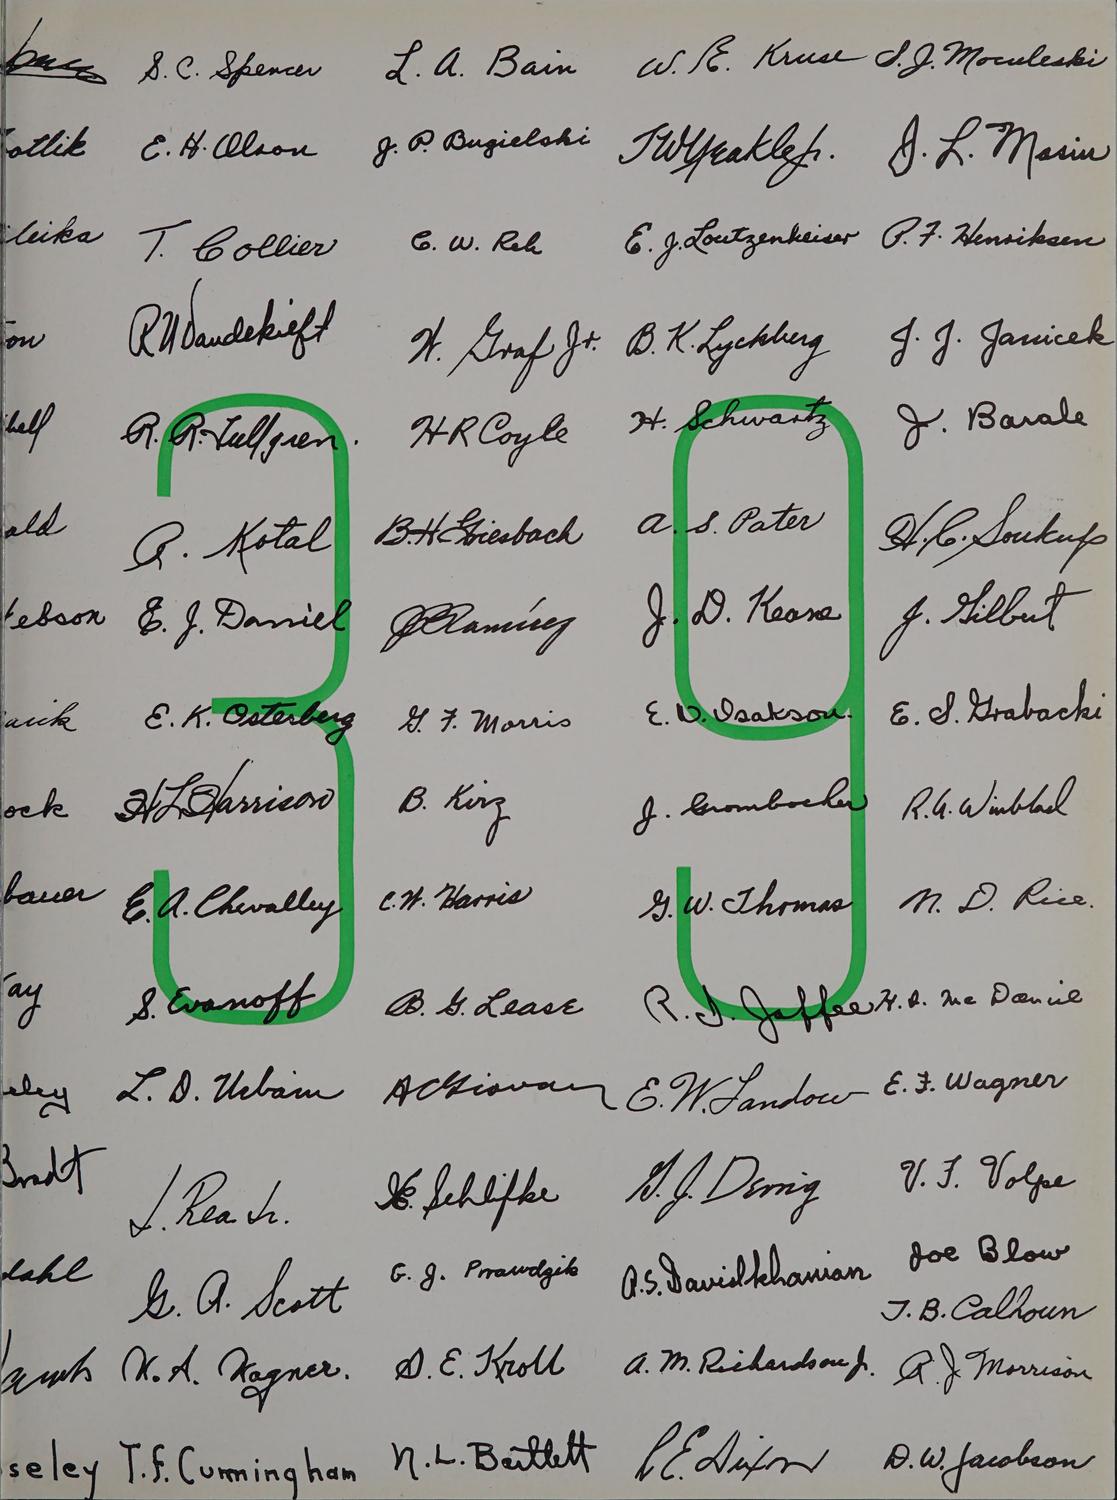 S. C. Spencer L. A. Bain W. E. Kruse S. J. Moculeski
otlik E. H. Olson J. P. Bugielski J. L. Masin
leika T. Collier C. W. Reh E. J. Loutzenheiser P. F. Henriksen
on R W Vandekieft W. Graf Jr. B. K. Lyckberg J. J. Janicek
bell R. R. Tullgren. H R Coyle H. Schwartz J. Barale
ald A. Kotal B. H. Giesbach A. S. Pater H. C. Soukup
ebson E. J. Daniel J C Ramirez J. D. Keane J. Gilbert
arik E. K. Osterberg G. F. Morris E. V. Isakson. E. S. Grabacki
ock H L Harrison B. Kirz J. Grombacher R. A. Winblad
bauer E. A. Chevalley C. W. Harris G. W. Thomas N. D. Rice.
ay S. Evanoff B. G. Lease R. J. Jaffee H. A. Mc Daniel
eley L. D. Urbain E. W. Landow E. F. Wagner
Bradt J. Rea Jr. Schlifke G. J. Demig V. F. Volpe
dahl G. A. Scott G. J. Prawdzik A. S. Davidkhanian Joe Blow
T. B. Calhoun
W. A. Wagner. D. E. Kroll A. M. Richardson Jr. R. J. Morrison
seley T. F. Cunningham N. L. Bartlett E. Dixon D. W. Jacobson
39